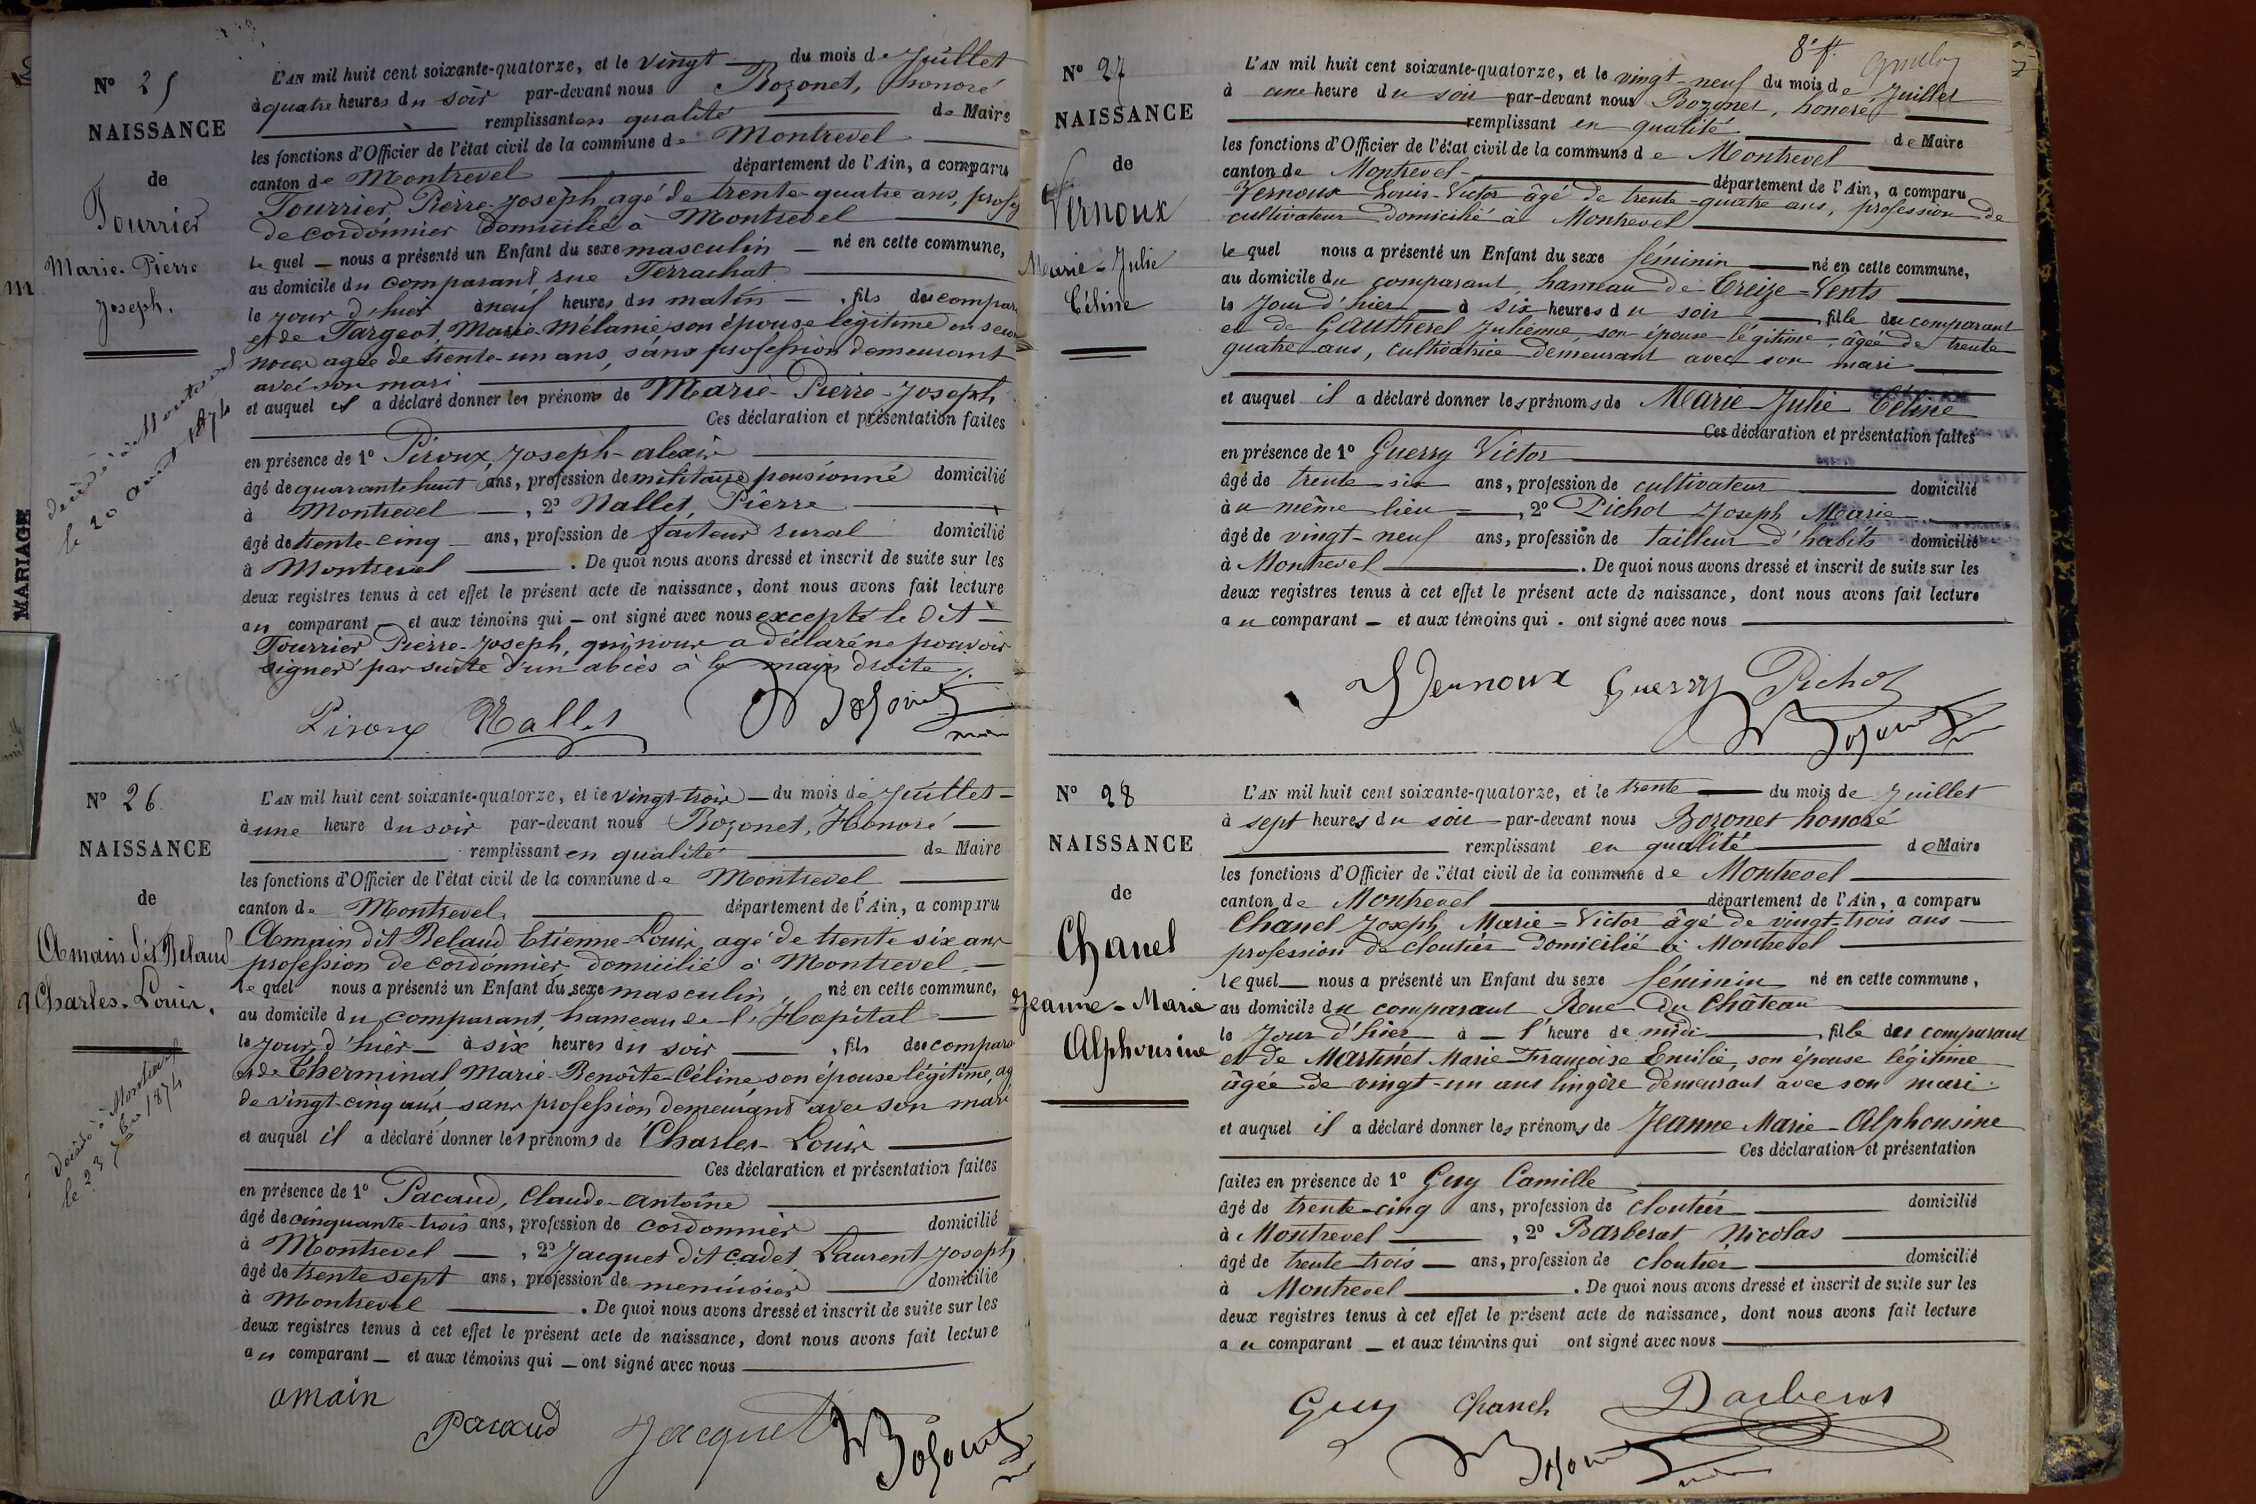 N° 25
NAISSANCE
de
Tourrier
Marie-Pierre
Joseph.
décédé à Montrevel
le 20 août 1874
L'AN mil huit cent soixante-quatorze, et le vingt du mois de Juillet
à quatre heures du soir par-devant nous Bozonet, honoré
remplissant en qualité de Maire
les fonctions d'Officier de l'état civil de la commune de Montrevel
canton de Montrevel département de l'Ain, a comparu
Tourrier, Pierre-Joseph agé de trente-quatre ans, profes
de cordonnier domicilié à Montrevel
lequel nous a présenté un Enfant du sexe masculin né en cette commune,
au domicile du comparant rue Terrachat
le jour d'hier à neuf heures du matin, fils du compar
et de Targeot, Marie-Mélanie son épouse légitime en secon
noces agée de trente-un ans, sans profession demeurant
avec son mari
et auquel il a déclaré donner les prénoms de Marie-Pierre-Joseph,
Ces déclaration et présentation faites
en présence de 1° Piroux, Joseph-alexis
âgé de quarante huit ans, profession de militaire pensionné domicilié
à Montrevel, 2° Nallet, Pierre
âgé de trente-cinq ans, profession de facteur rural domicilié
à Montrevel. De quoi nous avons dressé et inscrit de suite sur les
deux registres tenus à cet effet le présent acte de naissance, dont nous avons fait lecture
au comparant et aux témoins qui ont signé avec nous excepté le dit
Tourrier Pierre-Joseph, qui nous a déclaré ne pouvoir
signer par suite d'un abcès à la main droite
Piroux Nallet Bozonet
N° 26
NAISSANCE
de
Amain dit Belaud
Charles-Louis.
décédé à Montrevel
le 23 7bre 1874
L'AN mil huit cent soixante-quatorze, et le vingt-trois du mois de Juillet
à une heure du soir par-devant nous Bozonet, Honoré
remplissant en qualité de Maire
les fonctions d'Officier de l'état civil de la commune de Montrevel
canton de Montrevel. département de l'Ain, a comparu
Amain dit Belaud Etienne-Louis, agé de trente six ans
profession de cordonnier domicilié à Montrevel
lequel nous a présenté un Enfant du sexe masculin né en cette commune,
au domicile du comparant, hameau de l'Hopital
le jour d'hier à six heures du soir, fils du compara
et de Therminal Marie-Benoîte-Céline son épouse légitime, ag
de vingt-cinq ans, sans profession demeurant avec son mari
et auquel il a déclaré donner les prénoms de Charles-Louis
Ces déclaration et présentation faites
en présence de 1° Pacaud, Claude-antoine
âgé de cinquante-trois ans, profession de cordonnier domicilié
à Montrevel, 2° Jacquet dit cadet Laurent Joseph
âgé de trente sept ans, profession de menuisier domicilié
à Montrevel. De quoi nous avons dressé et inscrit de suite sur les
deux registres tenus à cet effet le présent acte de naissance, dont nous avons fait lecture
au comparant et aux témoins qui ont signé avec nous
amain
Pacaud Jacquet Bozonet
MARIAGE
8e ft.
N° 27
NAISSANCE
de
Vernoux
Marie-Julie
Céline
L'AN mil huit cent soixante-quatorze, et le vingt-neuf du mois de Juillet
à une heure du soir par-devant nous Bozonet, honoré
remplissant en qualité de Maire
les fonctions d'Officier de l'état civil de la commune de Montrevel
canton de Montrevel département de l'Ain, a comparu
Vernoux Louis-Victor âgé de trente-quatre ans, profession de
cultivateur domicilié à Montrevel
lequel nous a présenté un Enfant du sexe féminin né en cette commune,
au domicile du comparant, hameau de Treize-Vents
le jour d'hier à six heures du soir, fille du comparant
et de Gautheret Julienne, son épouse légitime, âgée de trente
quatre ans, cultivatrice demeurant avec son mari
et auquel il a déclaré donner les prénoms de Marie-Julie Céline
Ces déclaration et présentation faites
en présence de 1° Guerry Victor
âgé de trente six ans, profession de cultivateur domicilié
au même lieu, 2° Pichot Joseph Marie
âgé de vingt-neuf ans, profession de tailleur d'habits domicilié
à Montrevel. De quoi nous avons dressé et inscrit de suite sur les
deux registres tenus à cet effet le présent acte de naissance, dont nous avons fait lecture
au comparant et aux témoins qui ont signé avec nous
Vernoux Guerry Pichot
Bozonet
N° 28
NAISSANCE
de
Chanel
Jeanne-Marie
Alphonsine
L'AN mil huit cent soixante-quatorze, et le trente du mois de Juillet
à sept heures du soir par-devant nous Bozonet honoré
remplissant en qualité de Maire
les fonctions d'Officier de l'état civil de la commune de Montrevel
canton de Montrevel département de l'Ain, a comparu
Chanel Joseph, Marie-Victor âgé de vingt-trois ans
profession de cloutier domicilié à Montrevel
lequel nous a présenté un Enfant du sexe féminin né en cette commune,
au domicile du comparant Rue du Château
le jour d'hier à l'heure de midi, fille du comparant
et de Martinet Marie-Françoise Emilie, son épouse légitime
âgée de vingt-un ans lingère demeurant avec son mari.
et auquel il a déclaré donner les prénoms de Jeanne Marie-Alphonsine
Ces déclaration et présentation
faites en présence de 1° Guy Camille
âgé de trente-cinq ans, profession de cloutier domicilié
à Montrevel, 2° Barberat Nicolas
âgé de trente trois ans, profession de cloutier domicilié
à Montrevel. De quoi nous avons dressé et inscrit de suite sur les
deux registres tenus à cet effet le présent acte de naissance, dont nous avons fait lecture
au comparant et aux témoins qui ont signé avec nous
Guy Chanel Barberat
Bozonet